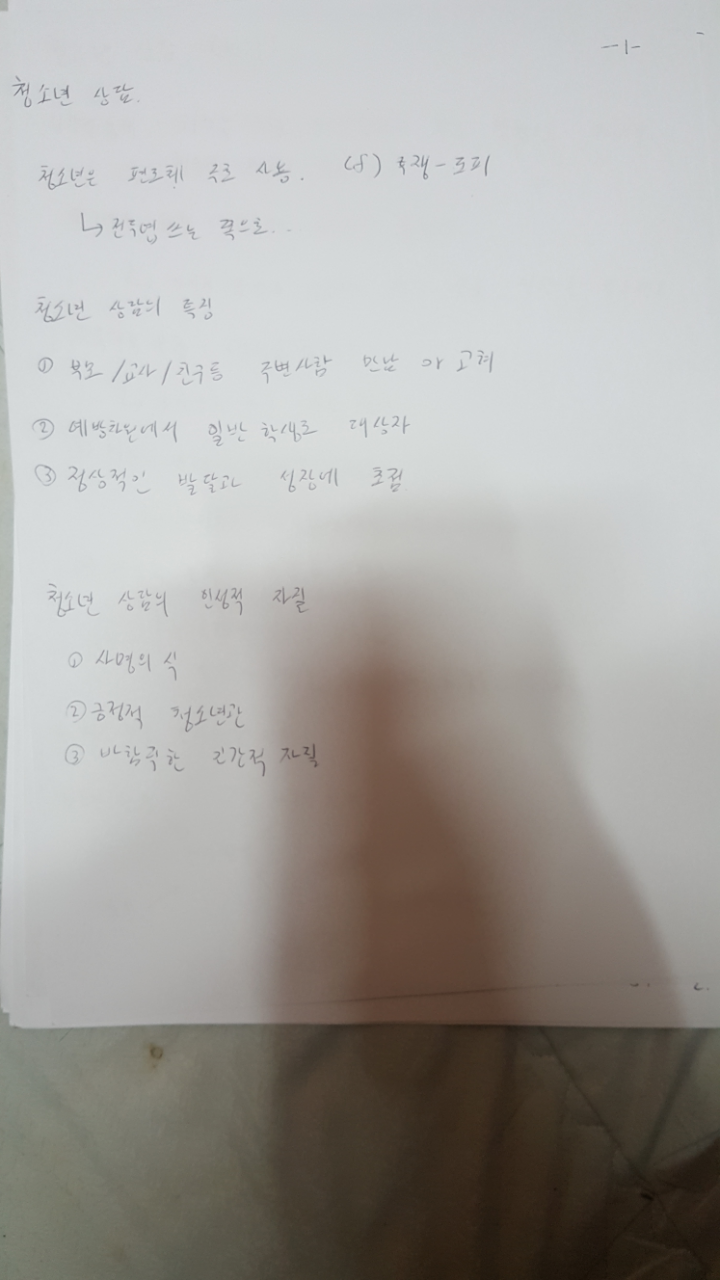 -1-
청소년 상담.
청소년은 편도체 주로 사용. (cf) 투쟁-도피
↳ 전두엽 쓰는 쪽으로..
청소년 상담의 특징
① 부모/교사/친구등 주변사람 만남 고려
② 예방차원에서 일반학생도 대상자
③ 정상적인 발달과 성장에 초점
청소년 상담의 인성적 자질
① 사명의식
② 긍정적 청소년관
③ 바람직한 인간적 자질